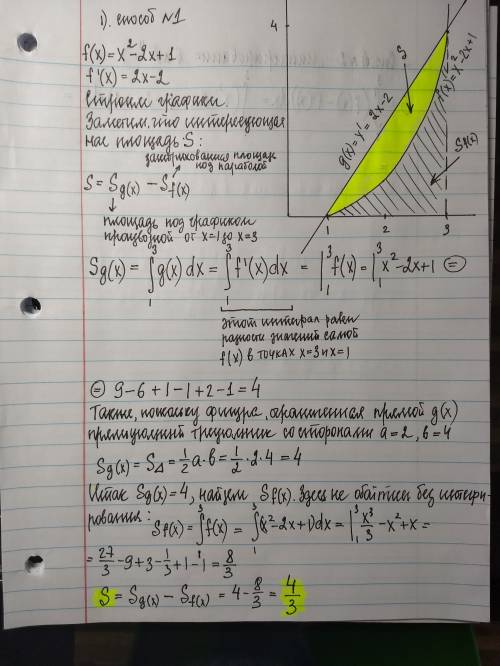 1). способ №1
4
f(x)=x²-2x+1
f'(x)=2x-2
Строим графики.
Заметим, что интересующая
нас площадь S:
заштрихованная площадь
под параболой
S = Sg(x) - Sf(x)
площадь под графиком
производной от x=1 до x=3
g(x)=y'=2x-2
S
f(x)=x²-2x+1
Sf(x)
1 2 3
Sg(x) = ∫₁³ g(x)dx = ∫₁³ f'(x)dx = |₁³ f(x) = |₁³ x²-2x+1 =
этот интеграл равен
разности значений самой
f(x) в точках x=3 и x=1
= 9-6+1-1+2-1=4
Также, поскольку фигура, ограниченная прямой g(x)
прямоугольный треугольник со сторонами a=2, b=4
Sg(x) = S△ = 1/2 a·b = 1/2 · 2·4 = 4
Итак Sg(x) = 4, найдем Sf(x). Здесь не обойтись без интегри-
рования: Sf(x) = ∫₁³ f(x) = ∫₁³ (x²-2x+1)dx = |₁³ x³/3 - x² + x =
= 27/3 - 9 + 3 - 1/3 + 1 - 1 = 8/3
S = Sg(x) - Sf(x) = 4 - 8/3 = 4/3